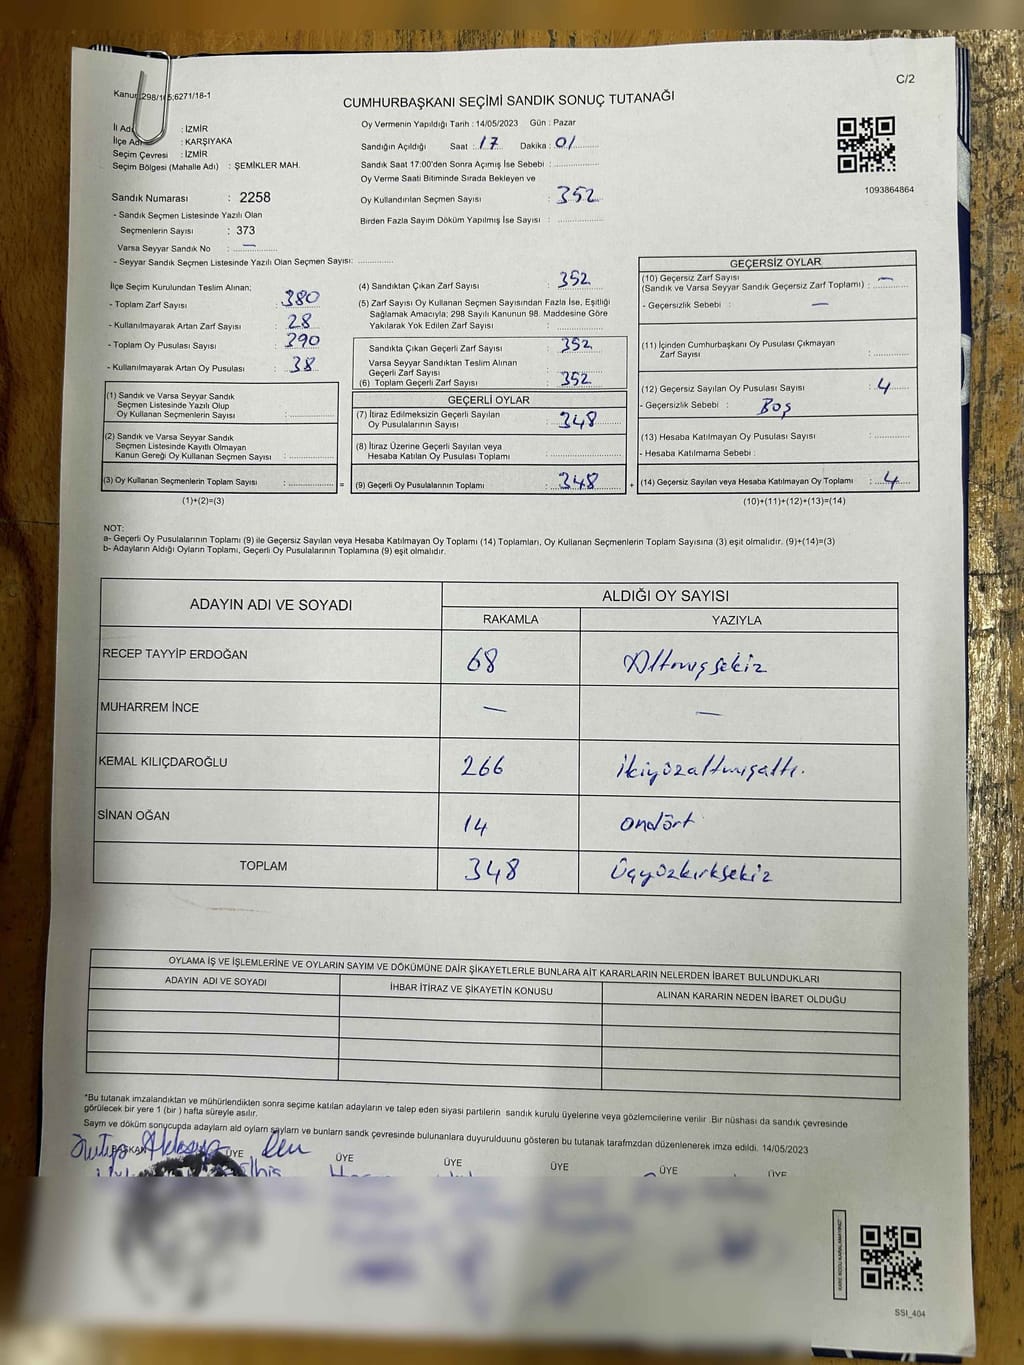 C/2
CUMHURBAŞKANI SEÇİMİ SANDIK SONUÇ TUTANAĞI
İl : İZMİR
İlçe : KARŞIYAKA
Seçim Çevresi : İZMİR
Seçim Bölgesi (Mahalle Adı) : ŞEMİKLER MAH.
Sandık Numarası : 2258
- Sandık Seçmen Listesinde Yazılı Olan
Seçmenlerin Sayısı : 373
Varsa Seyyar Sandık No : —
- Seyyar Sandık Seçmen Listesinde Yazılı Olan Seçmen Sayısı:
Oy Vermenin Yapıldığı Tarih : 14/05/2023 Gün : Pazar
Sandığın Açıldığı Saat : 17 Dakika : 01
Sandık Saat 17:00'den Sonra Açımış İse Sebebi :
Oy Verme Saati Bitiminde Sırada Bekleyen ve
Oy Kullandırılan Seçmen Sayısı : 352
Birden Fazla Sayım Döküm Yapılmış İse Sayısı :
1093864864
İlçe Seçim Kurulundan Teslim Alınan;
- Toplam Zarf Sayısı : 380
- Kullanılmayarak Artan Zarf Sayısı : 28
- Toplam Oy Pusulası Sayısı : 390
- Kullanılmayarak Artan Oy Pusulası : 38
(1) Sandık ve Varsa Seyyar Sandık
Seçmen Listesinde Yazılı Olup
Oy Kullanan Seçmenlerin Sayısı :
(2) Sandık ve Varsa Seyyar Sandık
Seçmen Listesinde Kayıtlı Olmayan
Kanun Gereği Oy Kullanan Seçmen Sayısı :
(3) Oy Kullanan Seçmenlerin Toplam Sayısı : =
(1)+(2)=(3)
(4) Sandıktan Çıkan Zarf Sayısı : 352
(5) Zarf Sayısı Oy Kullanan Seçmen Sayısından Fazla İse, Eşitliği
Sağlamak Amacıyla; 298 Sayılı Kanunun 98. Maddesine Göre
Yakılarak Yok Edilen Zarf Sayısı :
Sandıkta Çıkan Geçerli Zarf Sayısı : 352
Varsa Seyyar Sandıktan Teslim Alınan
Geçerli Zarf Sayısı :
(6) Toplam Geçerli Zarf Sayısı : 352
GEÇERLİ OYLAR
(7) İtiraz Edilmeksizin Geçerli Sayılan
Oy Pusulalarının Sayısı : 348
(8) İtiraz Üzerine Geçerli Sayılan veya
Hesaba Katılan Oy Pusulası Toplamı :
(9) Geçerli Oy Pusulalarının Toplamı : 348 +
GEÇERSİZ OYLAR
(10) Geçersiz Zarf Sayısı
(Sandık ve Varsa Seyyar Sandık Geçersiz Zarf Toplamı) : —
- Geçersizlik Sebebi : —
(11) İçinden Cumhurbaşkanı Oy Pusulası Çıkmayan
Zarf Sayısı :
(12) Geçersiz Sayılan Oy Pusulası Sayısı : 4
- Geçersizlik Sebebi : Boş
(13) Hesaba Katılmayan Oy Pusulası Sayısı :
- Hesaba Katılmama Sebebi :
(14) Geçersiz Sayılan veya Hesaba Katılmayan Oy Toplamı : 4
(10)+(11)+(12)+(13)=(14)
NOT:
a- Geçerli Oy Pusulalarının Toplamı (9) ile Geçersiz Sayılan veya Hesaba Katılmayan Oy Toplamı (14) Toplamları, Oy Kullanan Seçmenlerin Toplam Sayısına (3) eşit olmalıdır. (9)+(14)=(3)
b- Adayların Aldığı Oyların Toplamı, Geçerli Oy Pusulalarının Toplamına (9) eşit olmalıdır.
ADAYIN ADI VE SOYADI ALDIĞI OY SAYISI
RAKAMLA YAZIYLA
RECEP TAYYİP ERDOĞAN 68 Altmışsekiz
MUHARREM İNCE — —
KEMAL KILIÇDAROĞLU 266 ikiyüzaltmışaltı.
SİNAN OĞAN 14 ondört
TOPLAM 348 Üçyüzkırksekiz
OYLAMA İŞ VE İŞLEMLERİNE VE OYLARIN SAYIM VE DÖKÜMÜNE DAİR ŞİKAYETLERLE BUNLARA AİT KARARLARIN NELERDEN İBARET BULUNDUKLARI
ADAYIN ADI VE SOYADI İHBAR İTİRAZ VE ŞİKAYETİN KONUSU ALINAN KARARIN NEDEN İBARET OLDUĞU
*Bu tutanak imzalandıktan ve mühürlendikten sonra seçime katılan adayların ve talep eden siyasi partilerin sandık kurulu üyelerine veya gözlemcilerine verilir. Bir nüshası da sandık çevresinde
görülecek bir yere 1 (bir ) hafta süreyle asılır.
Sayım ve döküm sonucunda adayların ald oyların sayların ve bunların sandk çevresinde bulunanlara duyurulduunu gösteren bu tutanak tarafmzdan düzenlenerek imza edildi. 14/05/2023
ÜYE ÜYE ÜYE ÜYE ÜYE ÜYE
SSI_404